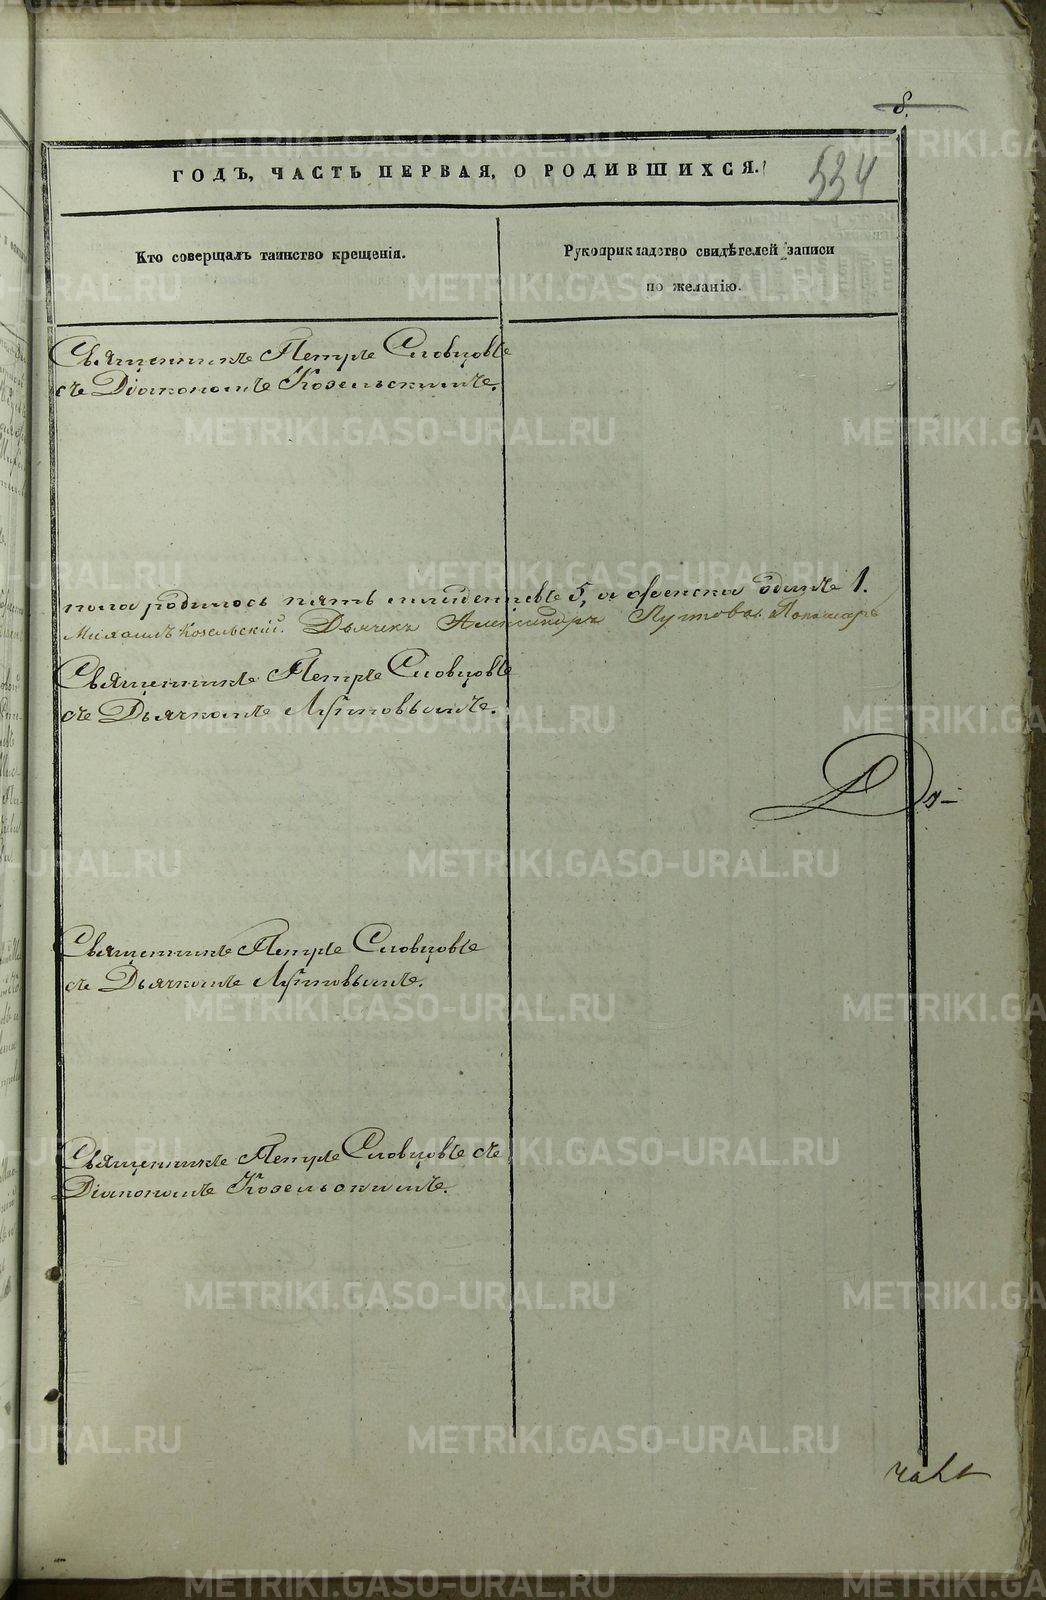 8.
ГОДЪ, ЧАСТЬ ПЕРВАЯ, О РОДИВШИХСЯ.
534
Кто совершалъ таинство крещенія.
Рукоприкладство свидѣтелей записи
по желанію.
Священникъ Петръ Словцовъ
съ Діакономъ Козельскимъ.
пола родилось пять младенцевъ 5, а женска одинъ 1.
Михаилъ Козельскій. Дьячекъ Александръ Пономарь
Священникъ Петръ Словцовъ
съ Дьячкомъ
До-
Священникъ Петръ Словцовъ
съ Дьячкомъ
Священникъ Петръ Словцовъ съ
Діакономъ Козельскимъ.
METRIKI.GASO-URAL.RU